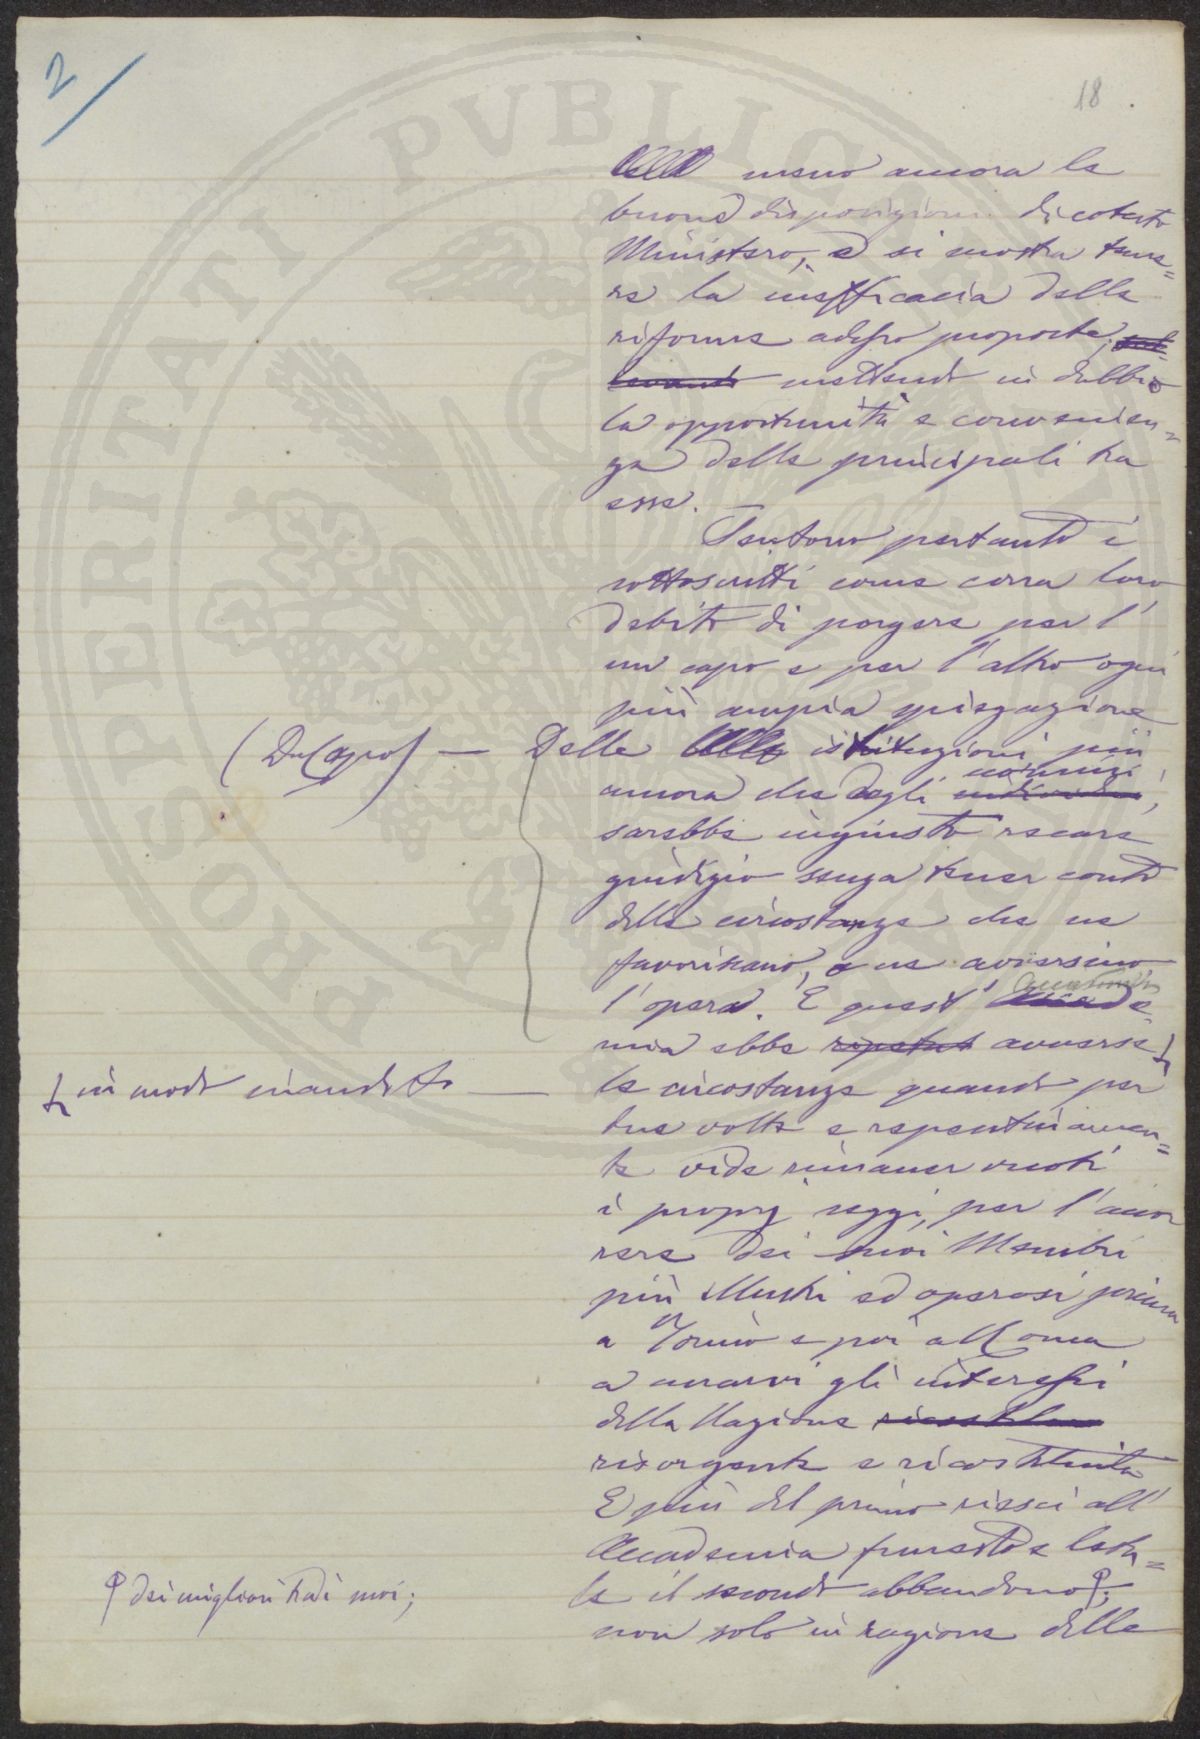 2
18
meno ancora le
buone disposizioni di cotesto
Ministero, e si mostra teme=
re la inefficacia delle
riforme adesso proposte,
mettendo in dubbio
la opportunità e convenien=
za delle principali tra
esse.
Tentono pertanto i
sottoscritti come corra loro
debito di porgere per l'
un capo e per l'altro ogni
più ampia spiegazione
(Da Capo) — Delle istituzioni più
uomini
ancora che degli individui,
sarebbe ingiusto recare
giudizio senza tener conto
delle circostanze che ne
favoriscano, o ne avversino
l'opera. E quest' Accade=
mia ebbe ripetute avverse
in modo inaudito — le circostanze quando per
due volte e repentinamen=
te vide rimaner vuoti
i proprj seggi, per l'accor
rere dei suoi Membri
più illustri ed operosi prima
a Torino e poi a Roma
a curarvi gli interessi
della Nazione
risorgente e ricostituita
E più del primo riescì all'
Accademia funesto e leta=
le il secondo abbandono;
dei migliori tra di noi;
non solo in ragione della
PROSPERITATI PVBLICAE